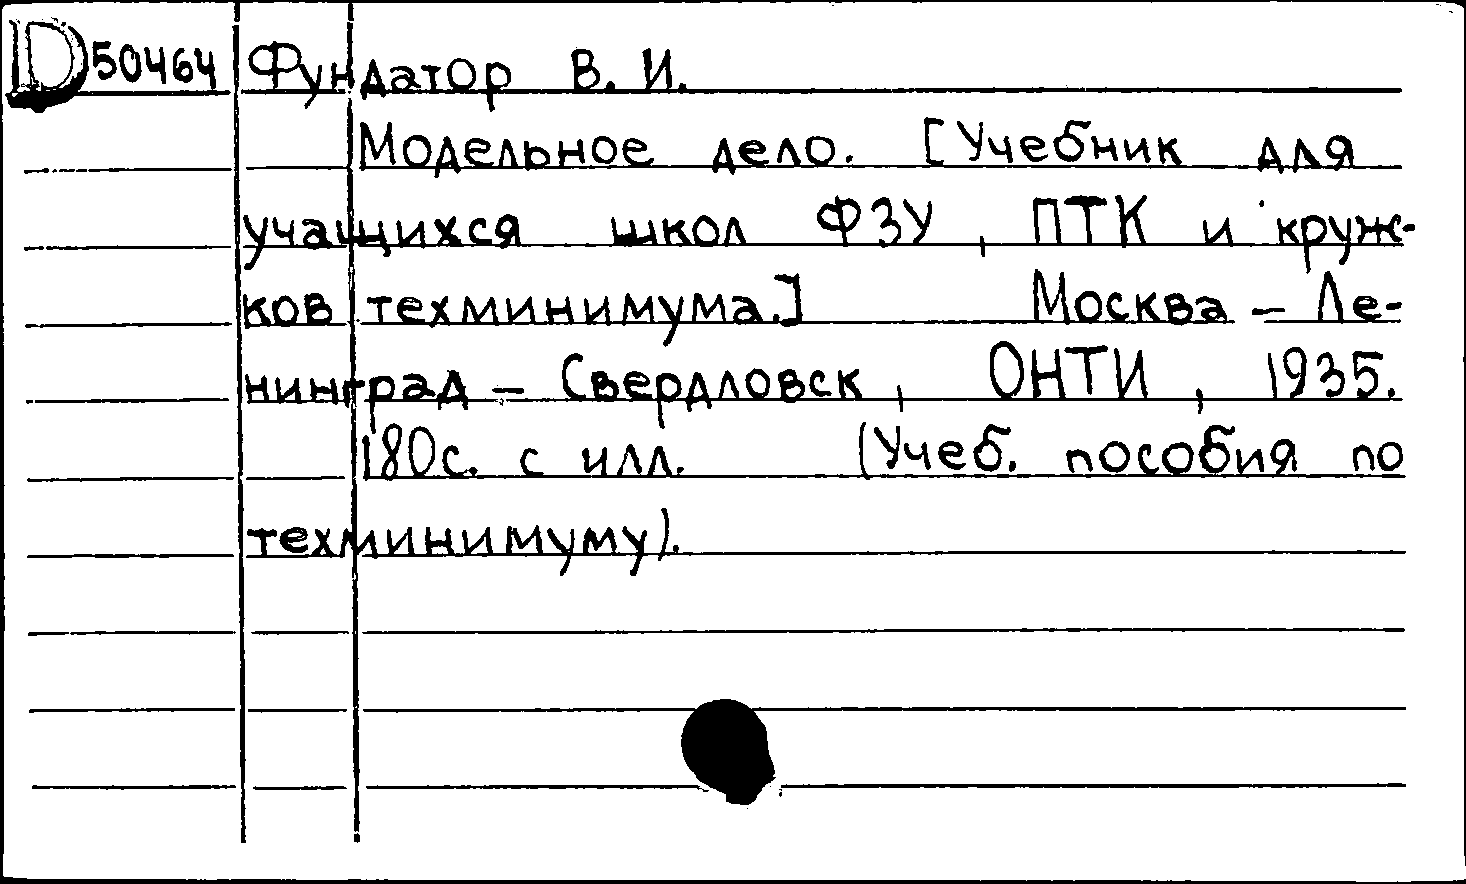 D 50464 Фундатор В. И.
Модельное дело. [Учебник для
учащихся школ ФЗУ, ПТК и круж-
ков техминимума.] Москва – Ле-
нинград – Свердловск, ОНТИ, 1935.
180с. с илл. (Учеб. пособия по
техминимуму).